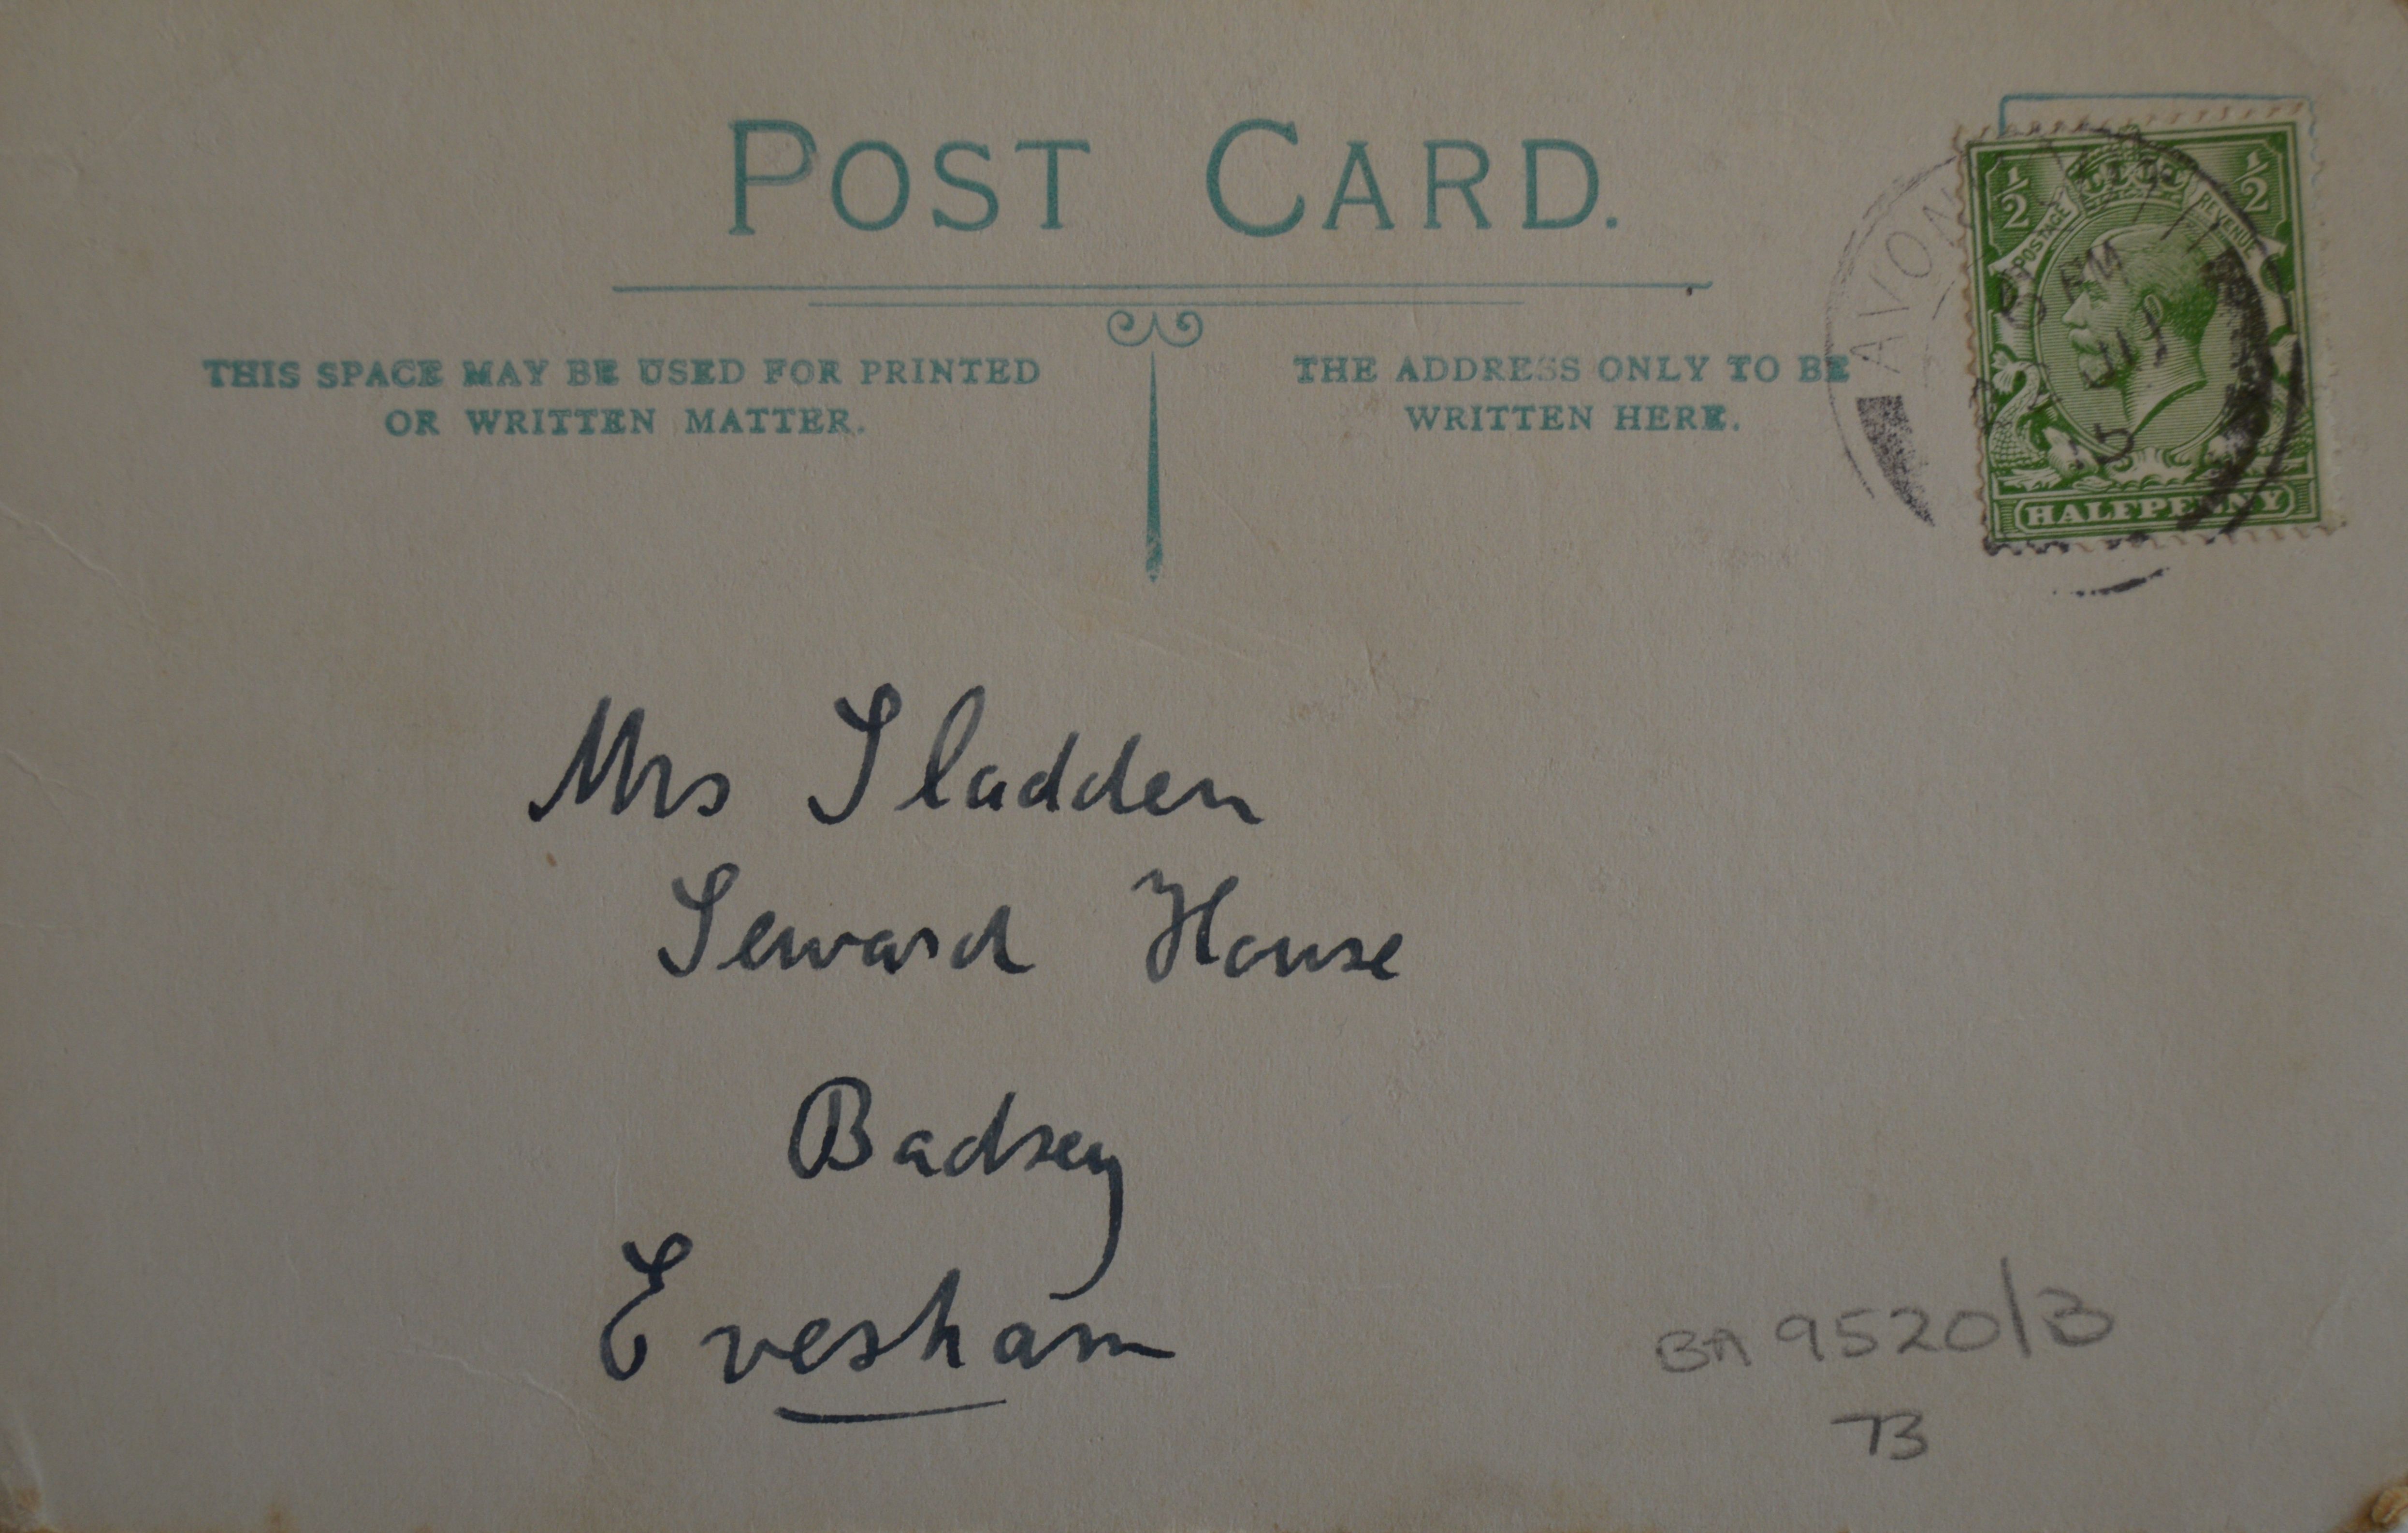 POST CARD.
THIS SPACE MAY BE USED FOR PRINTED
OR WRITTEN MATTER.
THE ADDRESS ONLY TO BE
WRITTEN HERE.
½ ½
POSTAGE REVENUE
HALFPENNY
AVON
JU
15
Mrs Sladden
Seward House
Badsey
Evesham
BA 9520/3
73